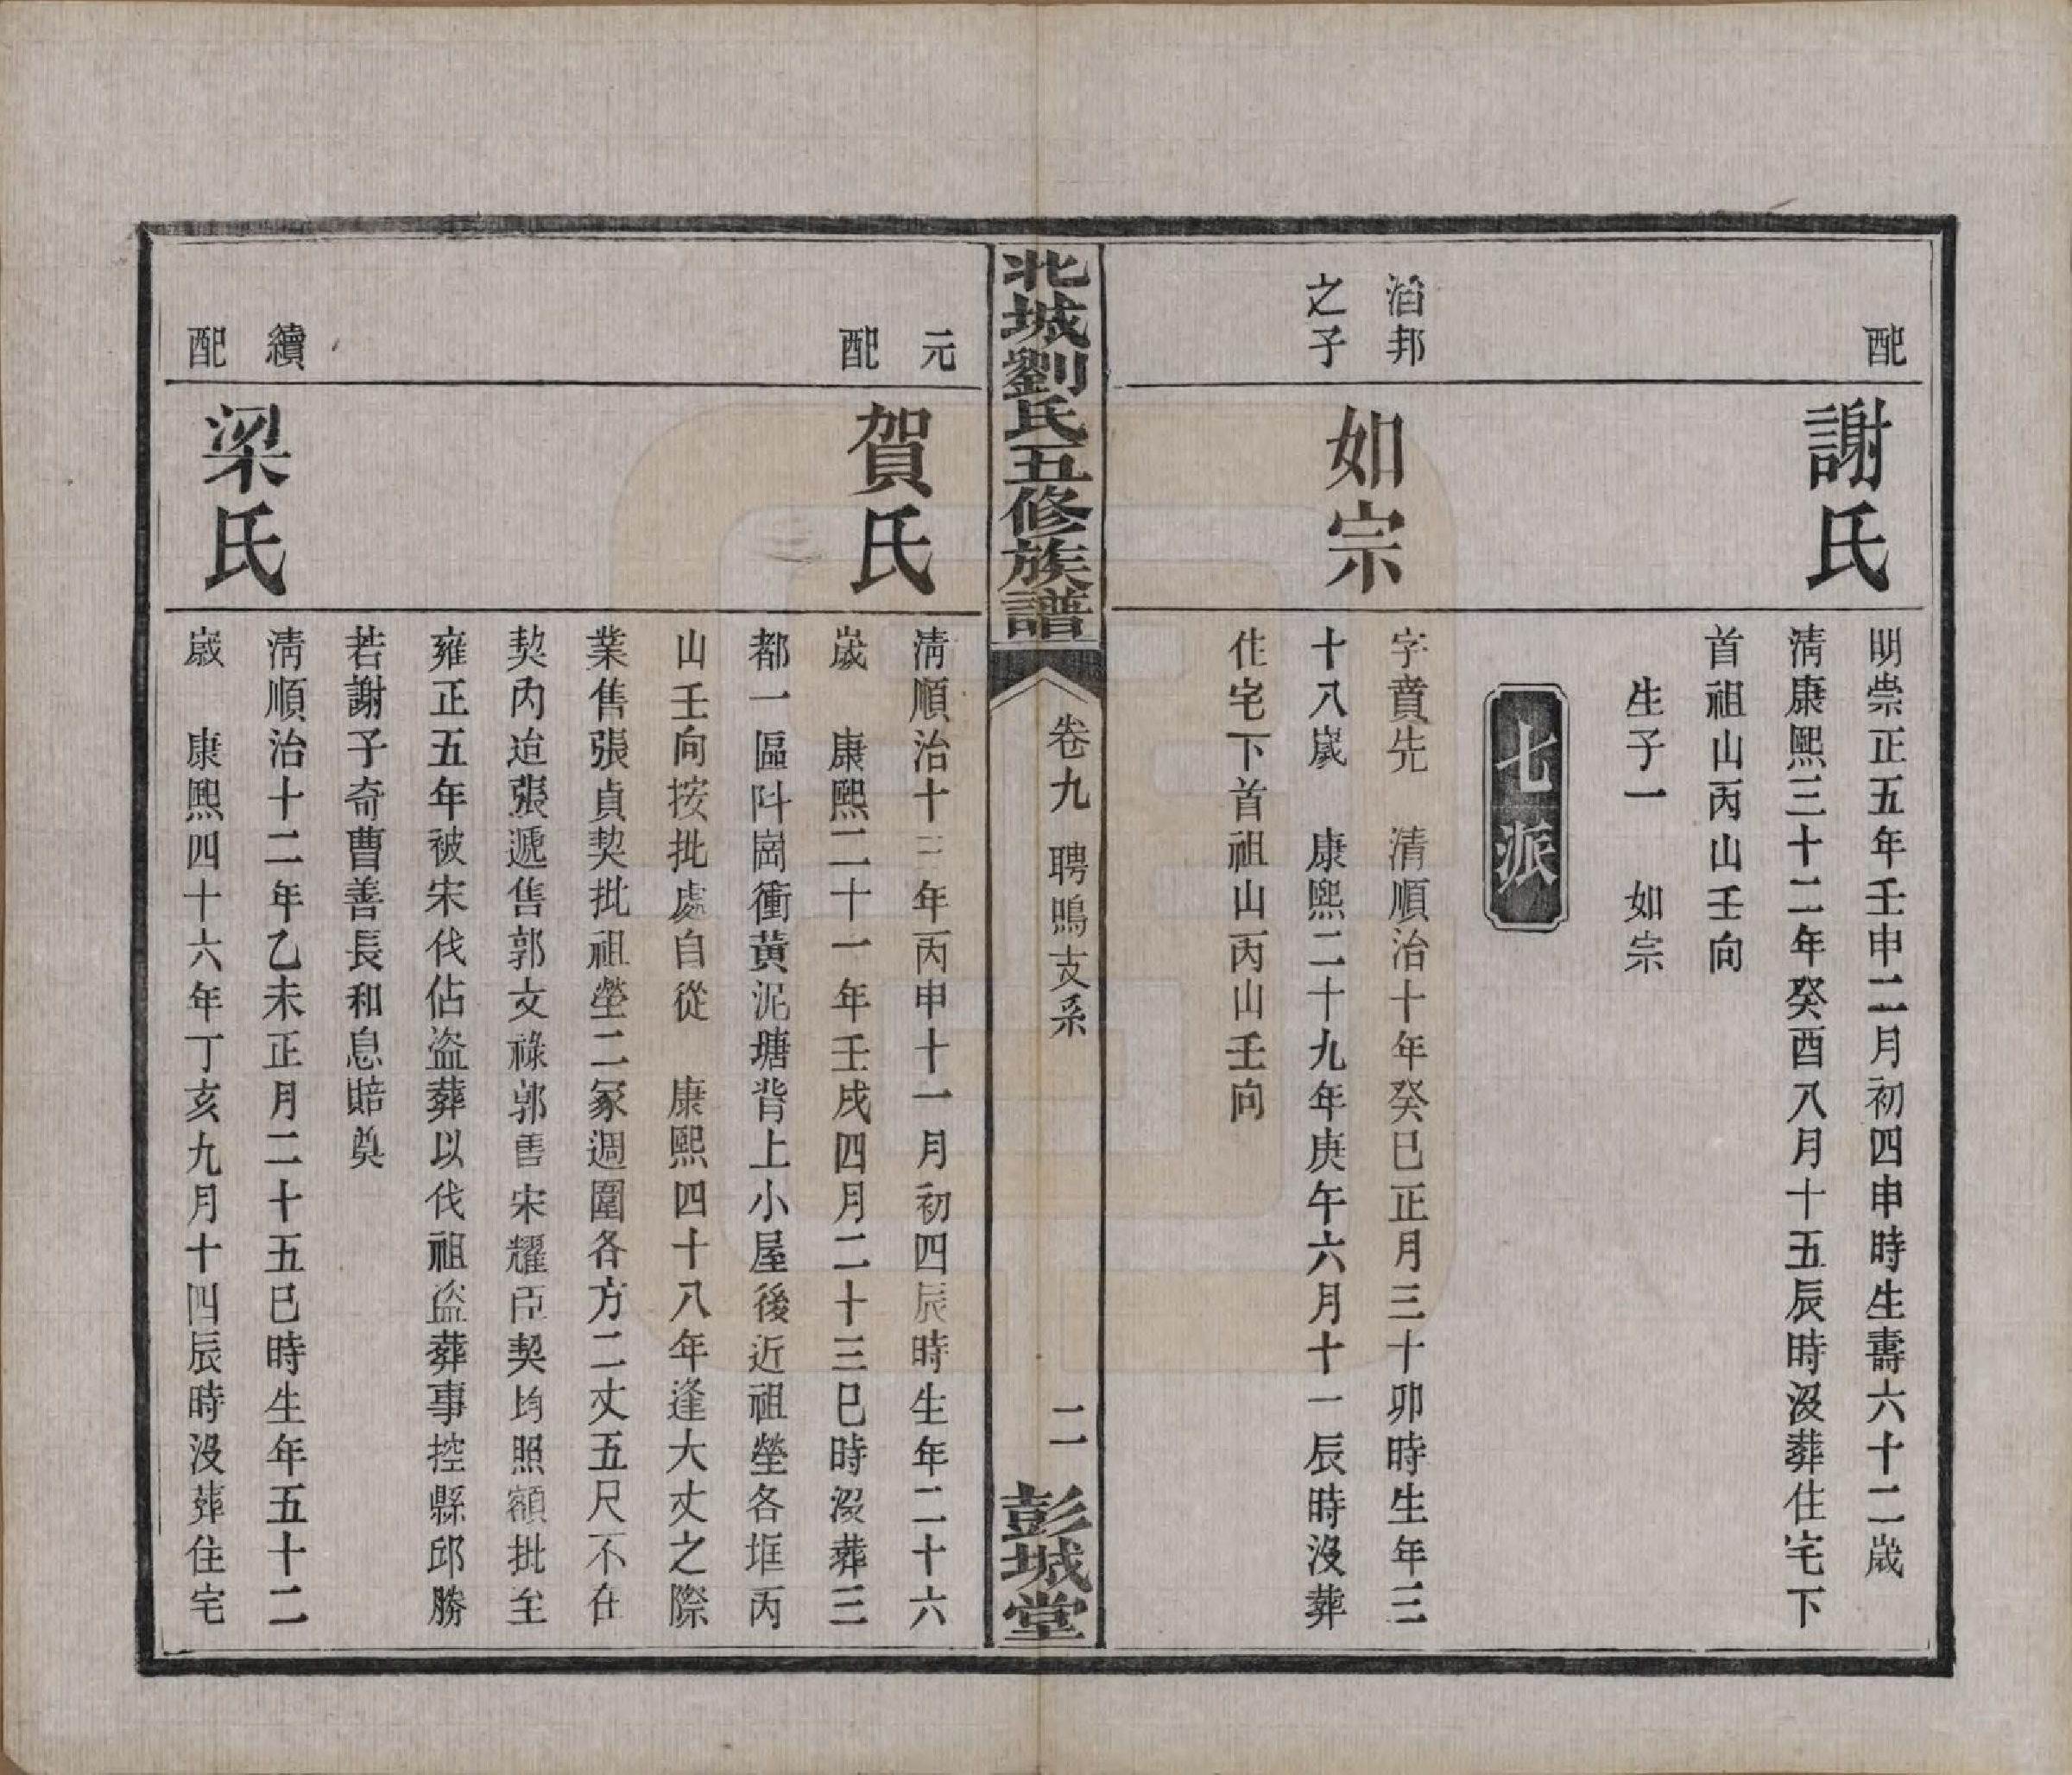 配
謝氏
明崇正五年壬申二月初四申時生壽六十二歲
清康熙三十二年癸酉八月十五辰時沒葬住宅下
首祖山丙山壬向
生子一　如宗
七派
滔邦
之子
如宗
字賁先　清順治十年癸巳正月三十卯時生年三
十八歲　康熙二十九年庚午六月十一辰時沒葬
住宅下首祖山丙山壬向
北城劉氏五修族譜
卷九　聘鳴支系
二
彭城堂
元
配
賀氏
清順治十三年丙申十一月初四辰時生年二十六
歲　康熙二十一年壬戌四月二十三巳時沒葬三
都一區阧崗衝黃泥塘背上小屋後近祖塋各堆丙
山壬向按批處自從　康熙四十八年逢大丈之際
業售張貞契批祖塋二冢週圍各方二丈五尺不在
契內迨張遞售郭文祿郭善宋耀臣契均照額批至
雍正五年被宋伐佔盜葬以伐祖盜葬事控縣邱勝
若謝子奇曹善長和息賠奠
續
配
梁氏
清順治十二年乙未正月二十五巳時生年五十二
歲　康熙四十六年丁亥九月十四辰時沒葬住宅